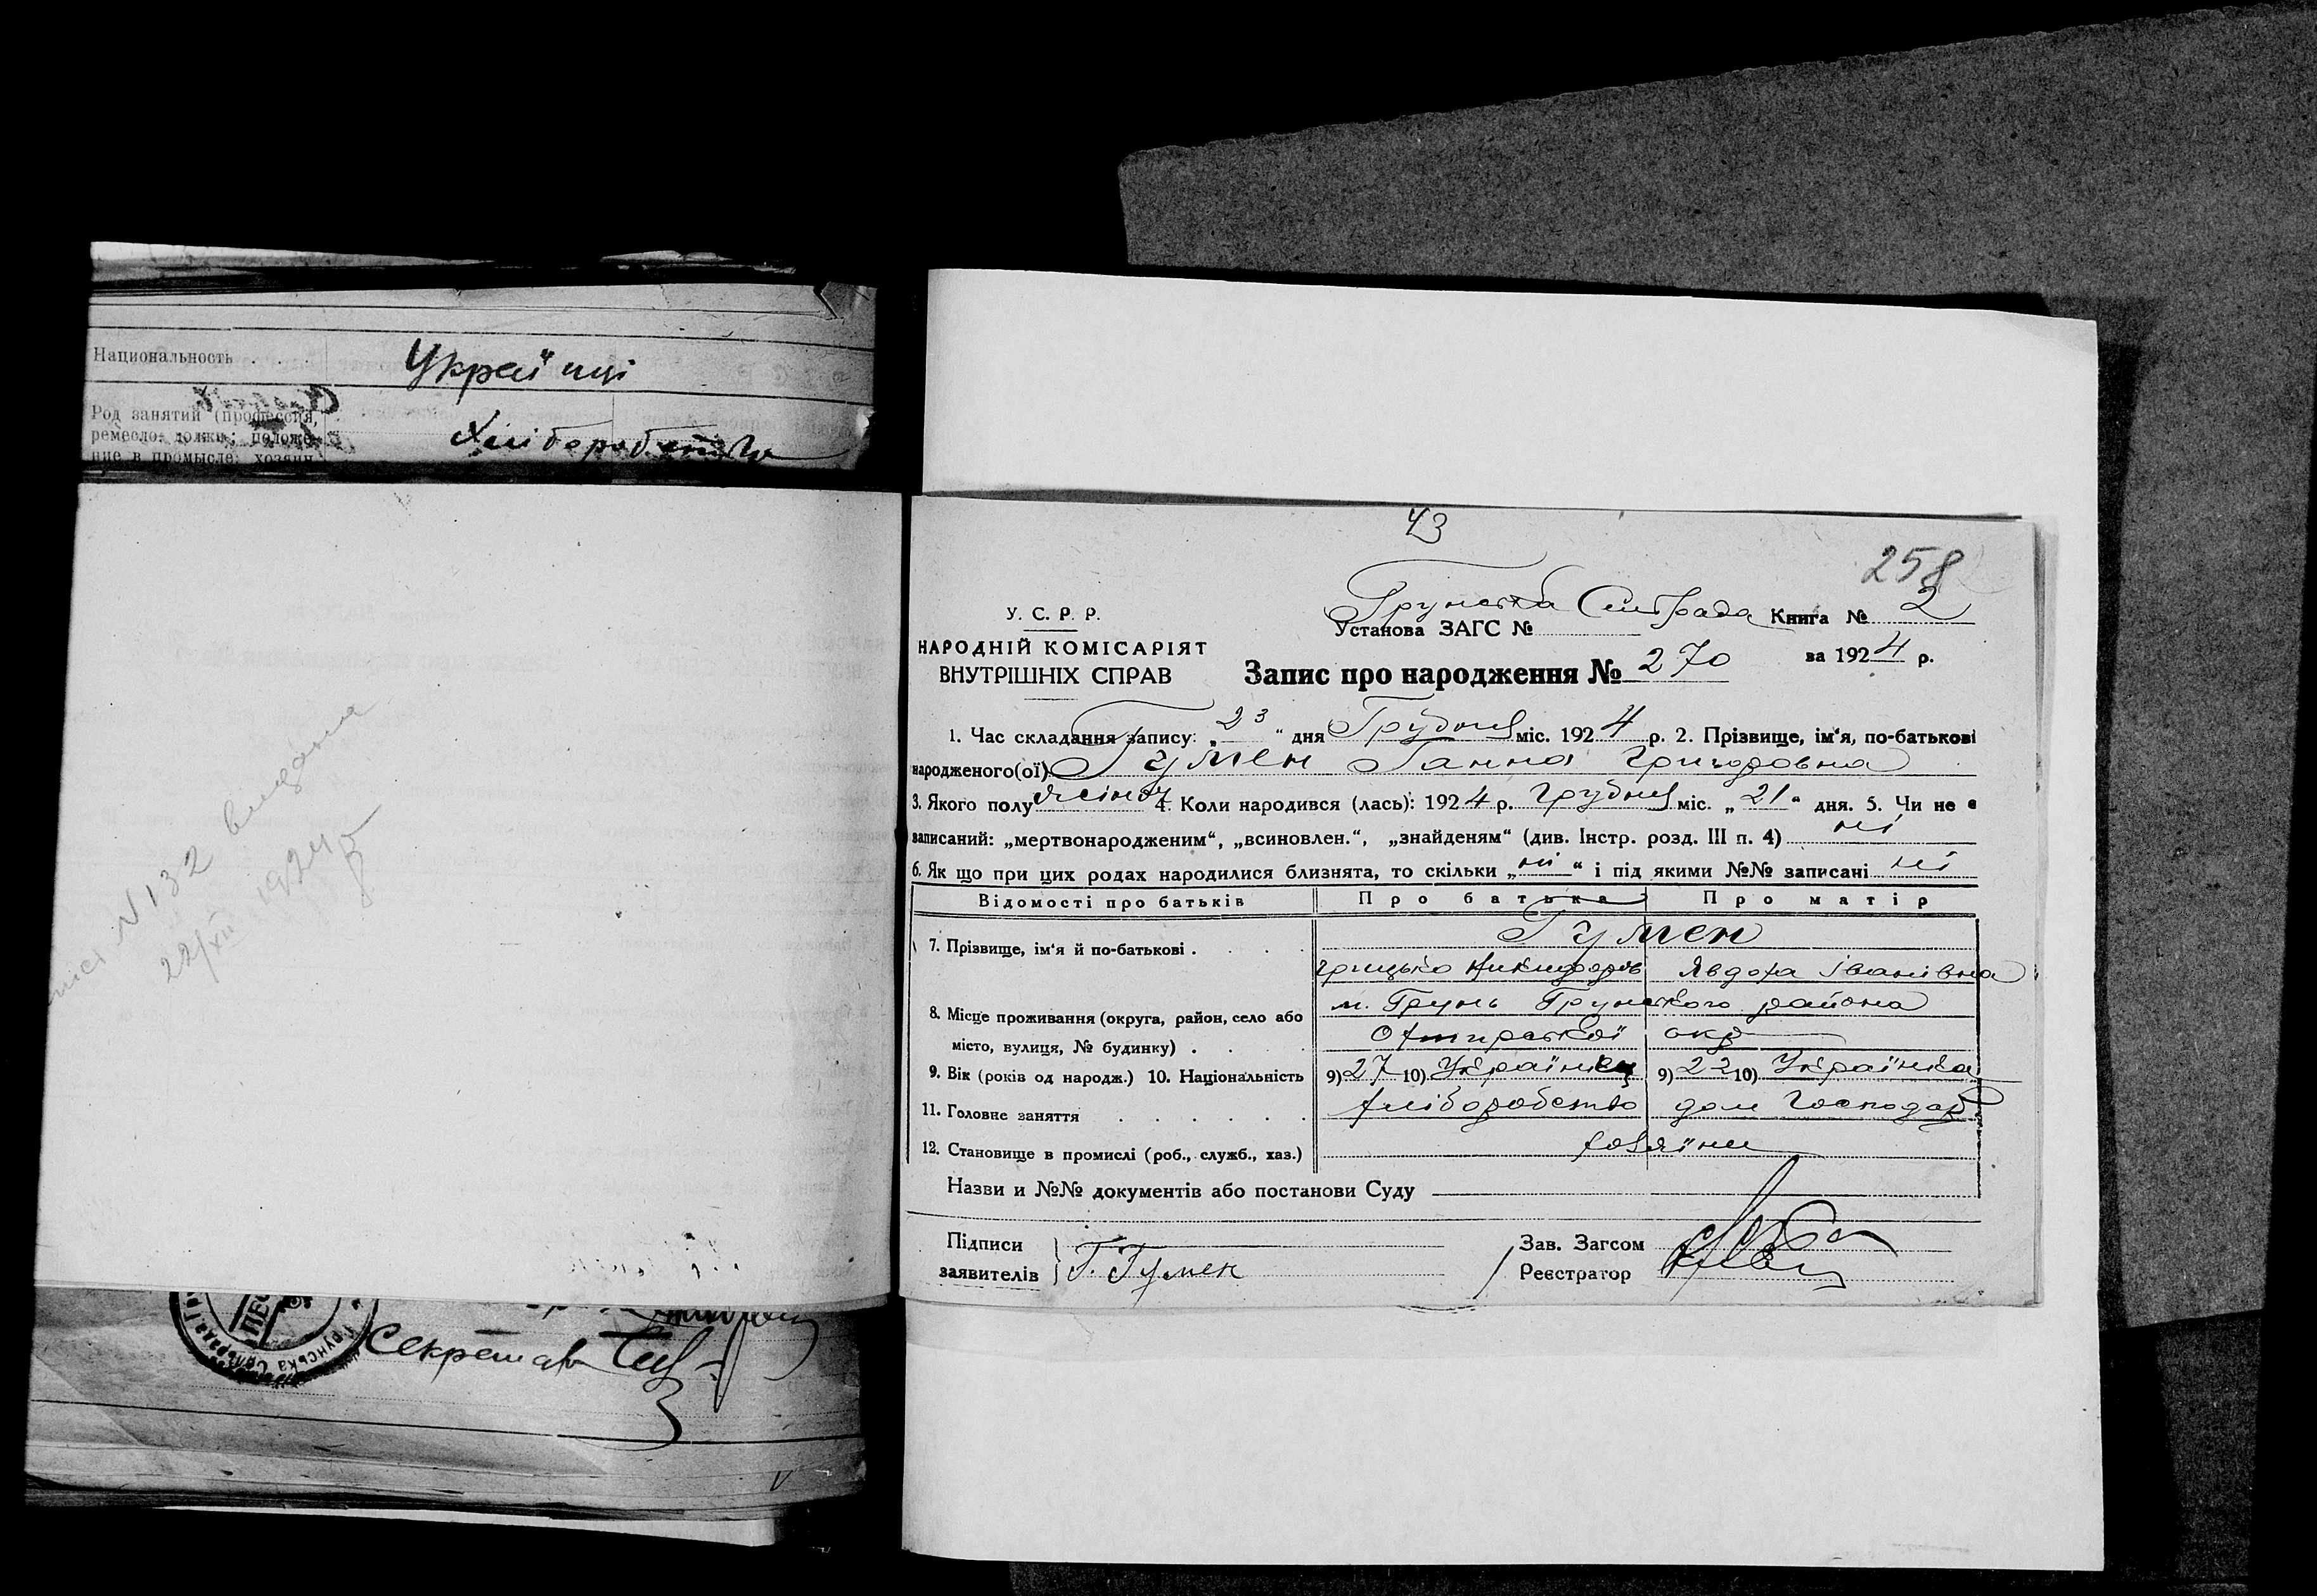 Национальность . . .
Украiнцi
Род занятий (профессия,
ремесло; должн.; положе-
ние в промысле: хозяин
Хліборобство
N 132 видана
22/XII 1924 р
Грунська Сільрада
Секретар
43
258
У. С. Р. Р.
НАРОДНІЙ КОМІСАРІЯТ
ВНУТРІШНІХ СПРАВ
Грунська Сільрада Книга № 2
Установа ЗАГС №
за 1924 р.
Запис про народження № 270
1. Час складання запису: „23“ дня Грудня міс. 1924 р. 2. Прізвище, ім‘я, по-батькові
народженого(ої) Гумен Ганна Григоровна
3. Якого полу жіноч 4. Коли народився (лась): 1924 р. Грудня міс. „21“ дня. 5. Чи не є
записаний: „мертвонародженим“, „всиновлен.“, „знайденям“ (див. Інстр. розд. III п. 4) ні
6. Як що при цих родах народилися близнята, то скільки „ні“ і під якими №№ записані ні
Відомості про батьків Про батька Про матір
7. Прізвище, ім‘я й по-батькові . . . . Гумен
Грицько Никифорів Явдоха Іванівна
8. Місце проживання (округа, район, село або
місто, вулиця, № будинку) . . .
м. Грунь Грунського района
Охтирської окр
9. Вік (років од народж.) 10. Національність 9) 27 10) Українець 9) 22 10) Українка
11. Головне заняття . . . . . . хліборобство дом господар
12. Становище в промислі (роб., служб., хаз.) хозяїни
Назви и №№ документів або постанови Суду
Підписи
заявителів Г. Гумен
Зав. Загсом
Реєстратор